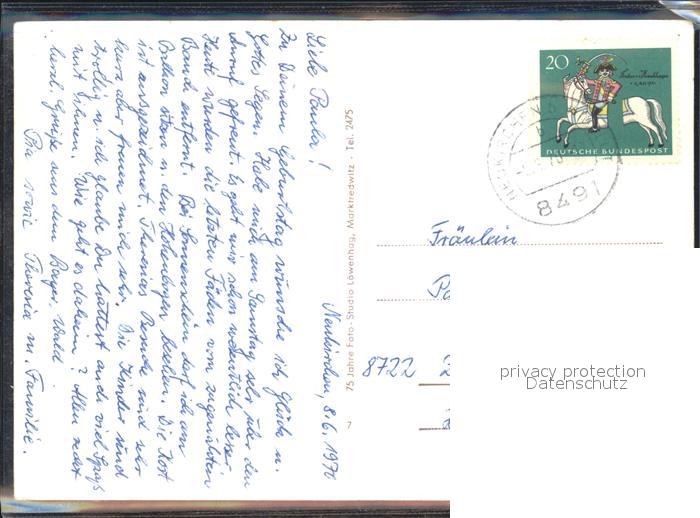 Neukirchen, 8.6.1970
Liebe Paula!
Zu Deinem Geburtstag wünsche ich Glück u.
Gottes Segen. Habe mich am Samstag sehr über den
Anruf gefreut. Es geht mir schon wesentlich besser.
Heute wurden die letzten Fäden vom
Bauch entfernt. Bei Sonnenschein darf ich am
Balkon sitzen u. den Hohenbogen besehen. Die Kost
ist ausgezeichnet. Theresias Besuche sind sehr
kurz aber freuen mich sehr. Die Kinder sind
trollig u. ich glaube Du hättest auch viel Spaß
mit Ihnen. Wie geht es daheim? Allen
herzl. Grüße aus dem Bayer. Wald
sowie Theresia m. Familie.
75 Jahre Foto-Studio Löwenhag, Marktredwitz - Tel. 2475
7
20
DEUTSCHE BUNDESPOST
8491
Fräulein
8722
privacy protection
Datenschutz